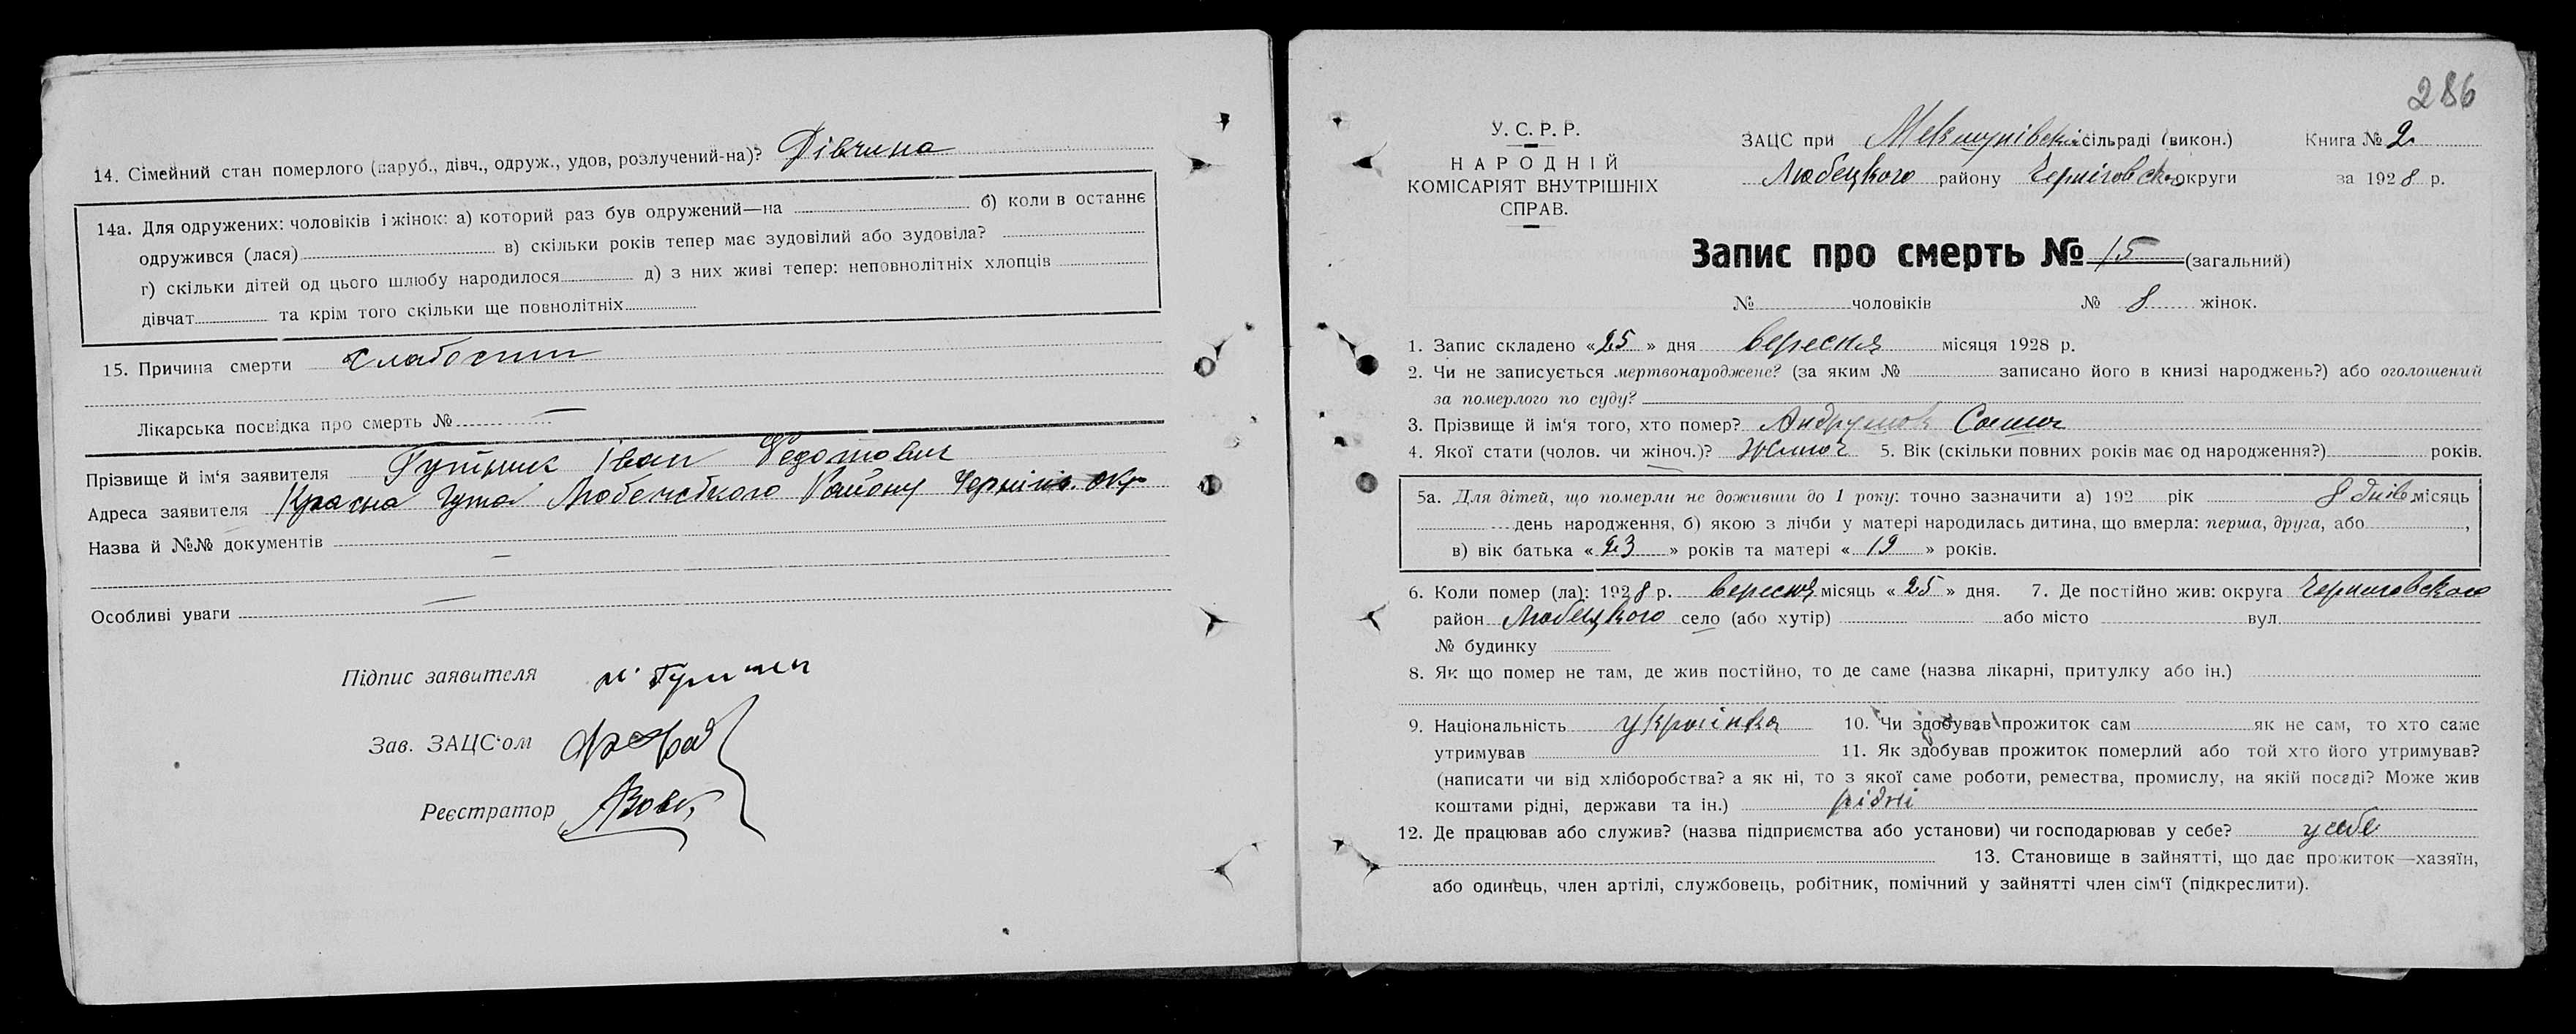 14. Сімейний стан померлого (паруб., дівч., одруж., удов, розлучений-на)? Дівчина
14а. Для одружених: чоловіків і жінок: а) которий раз був одружений—на б) коли в останнє
одружився (лася) в) скільки років тепер має зудовілий або зудовіла?
г) скільки дітей од цього шлюбу народилося д) з них живі тепер: неповнолітніх хлопців
дівчат та крім того скільки ще повнолітніх
15. Причина смерти слабости
Лікарська посвідка про смерть № —
Прізвище й ім'я заявителя Іван Федотович
Адреса заявителя Красна Гута Любечського Району Черніг. окр
Назва й №№ документів —
Особливі уваги —
Підпис заявителя
Зав. ЗАЦС'ом
Реєстратор АВовк
286
У. С. Р. Р.
НАРОДНІЙ
КОМІСАРІЯТ ВНУТРІШНІХ
СПРАВ.
ЗАЦС при сільраді (викон.) Книга № 2
Любецького району Черніговської округи за 1928 р.
Запис про смерть № 15 (загальний)
№ чоловіків № 8 жінок.
1. Запис складено «25» дня вересня місяця 1928 р.
2. Чи не записується мертвонароджене? (за яким № записано його в книзі народжень?) або оголошений
за померлого по суду?
3. Прізвище й ім'я того, хто помер? Андрушок
4. Якої стати (чолов. чи жіноч.)? Жіноч 5. Вік (скільки повних років має од народження?) років.
5а. Для дітей, що померли не доживши до 1 року: точно зазначити а) 192 рік 8 днів місяць
день народження, б) якою з лічби у матері народилась дитина, що вмерла: перша, друга, або ,
в) вік батька «23» років та матері «19» років.
6. Коли помер (ла): 1928 р. вересня місяць «25» дня. 7. Де постійно жив: округа Черниговского
район Любецкого село (або хутір) або місто вул.
№ будинку
8. Як що помер не там, де жив постійно, то де саме (назва лікарні, притулку або ін.)
9. Національність українка 10. Чи здобував прожиток сам як не сам, то хто саме
утримував 11. Як здобував прожиток померлий або той хто його утримував?
(написати чи від хліборобства? а як ні, то з якої саме роботи, ремества, промислу, на якій посаді? Може жив
коштами рідні, держави та ін.) рідні
12. Де працював або служив? (назва підприємства або установи) чи господарював у себе? у себе
13. Становище в зайнятті, що дає прожиток—хазяїн,
або одинець, член артілі, службовець, робітник, помічний у зайнятті член сім'ї (підкреслити).